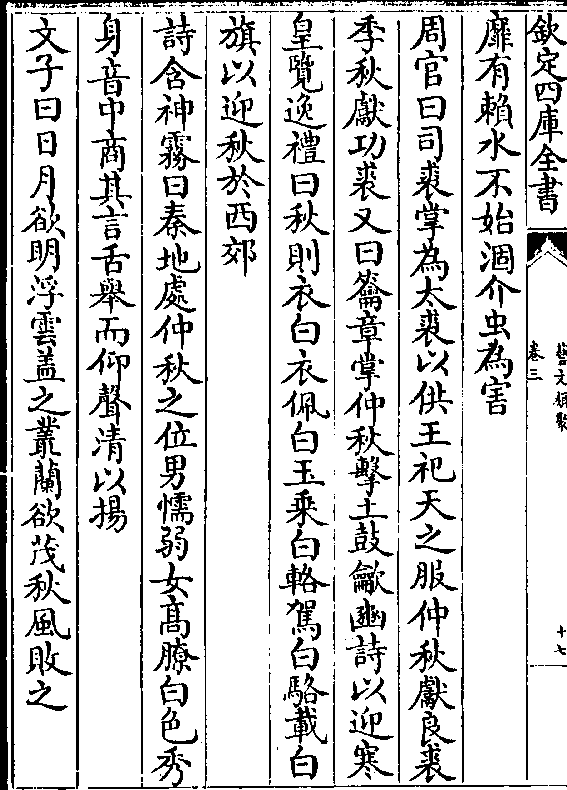 欽定四庫全書
藝文類聚
卷三
十七
靡有賴水不始涸介虫為害
周官曰司裘掌為大裘以供王祀天之服仲秋獻良裘
季秋獻功裘又曰籥章掌仲秋擊土鼓龡豳詩以迎寒
皇覽逸禮曰秋則衣白衣佩白玉乘白輅駕白駱載白
旗以迎秋於西郊
詩含神霧曰秦地處仲秋之位男懦弱女髙膫白色秀
身音中商其言舌舉而仰聲清以揚
文子曰日月欲明浮雲盖之叢蘭欲茂秋風敗之